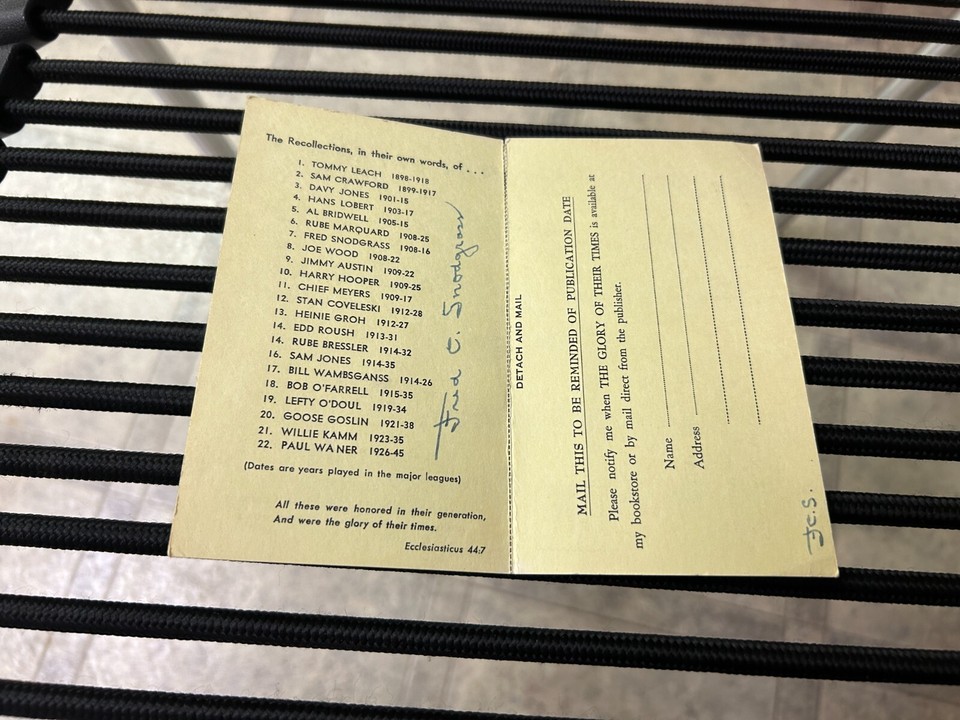 The Recollections, in their own words, of . . .
1. TOMMY LEACH 1898-1918
2. SAM CRAWFORD 1899-1917
3. DAVY JONES 1901-15
4. HANS LOBERT 1903-17
5. AL BRIDWELL 1905-15
6. RUBE MARQUARD 1908-25
7. FRED SNODGRASS 1908-16
8. JOE WOOD 1908-22
9. JIMMY AUSTIN 1909-22
10. HARRY HOOPER 1909-25
11. CHIEF MEYERS 1909-17
12. STAN COVELESKI 1912-28
13. HEINIE GROH 1912-27
14. EDD ROUSH 1913-31
14. RUBE BRESSLER 1914-32
16. SAM JONES 1914-35
17. BILL WAMBSGANSS 1914-26
18. BOB O'FARRELL 1915-35
19. LEFTY O'DOUL 1919-34
20. GOOSE GOSLIN 1921-38
21. WILLIE KAMM 1923-35
22. PAUL WANER 1926-45
(Dates are years played in the major leagues)
All these were honored in their generation,
And were the glory of their times.
Ecclesiasticus 44:7
Fred C. Snodgrass
DETACH AND MAIL
MAIL THIS TO BE REMINDED OF PUBLICATION DATE
Please notify me when THE GLORY OF THEIR TIMES is available at
my bookstore or by mail direct from the publisher.
Name
Address
F.C.S.